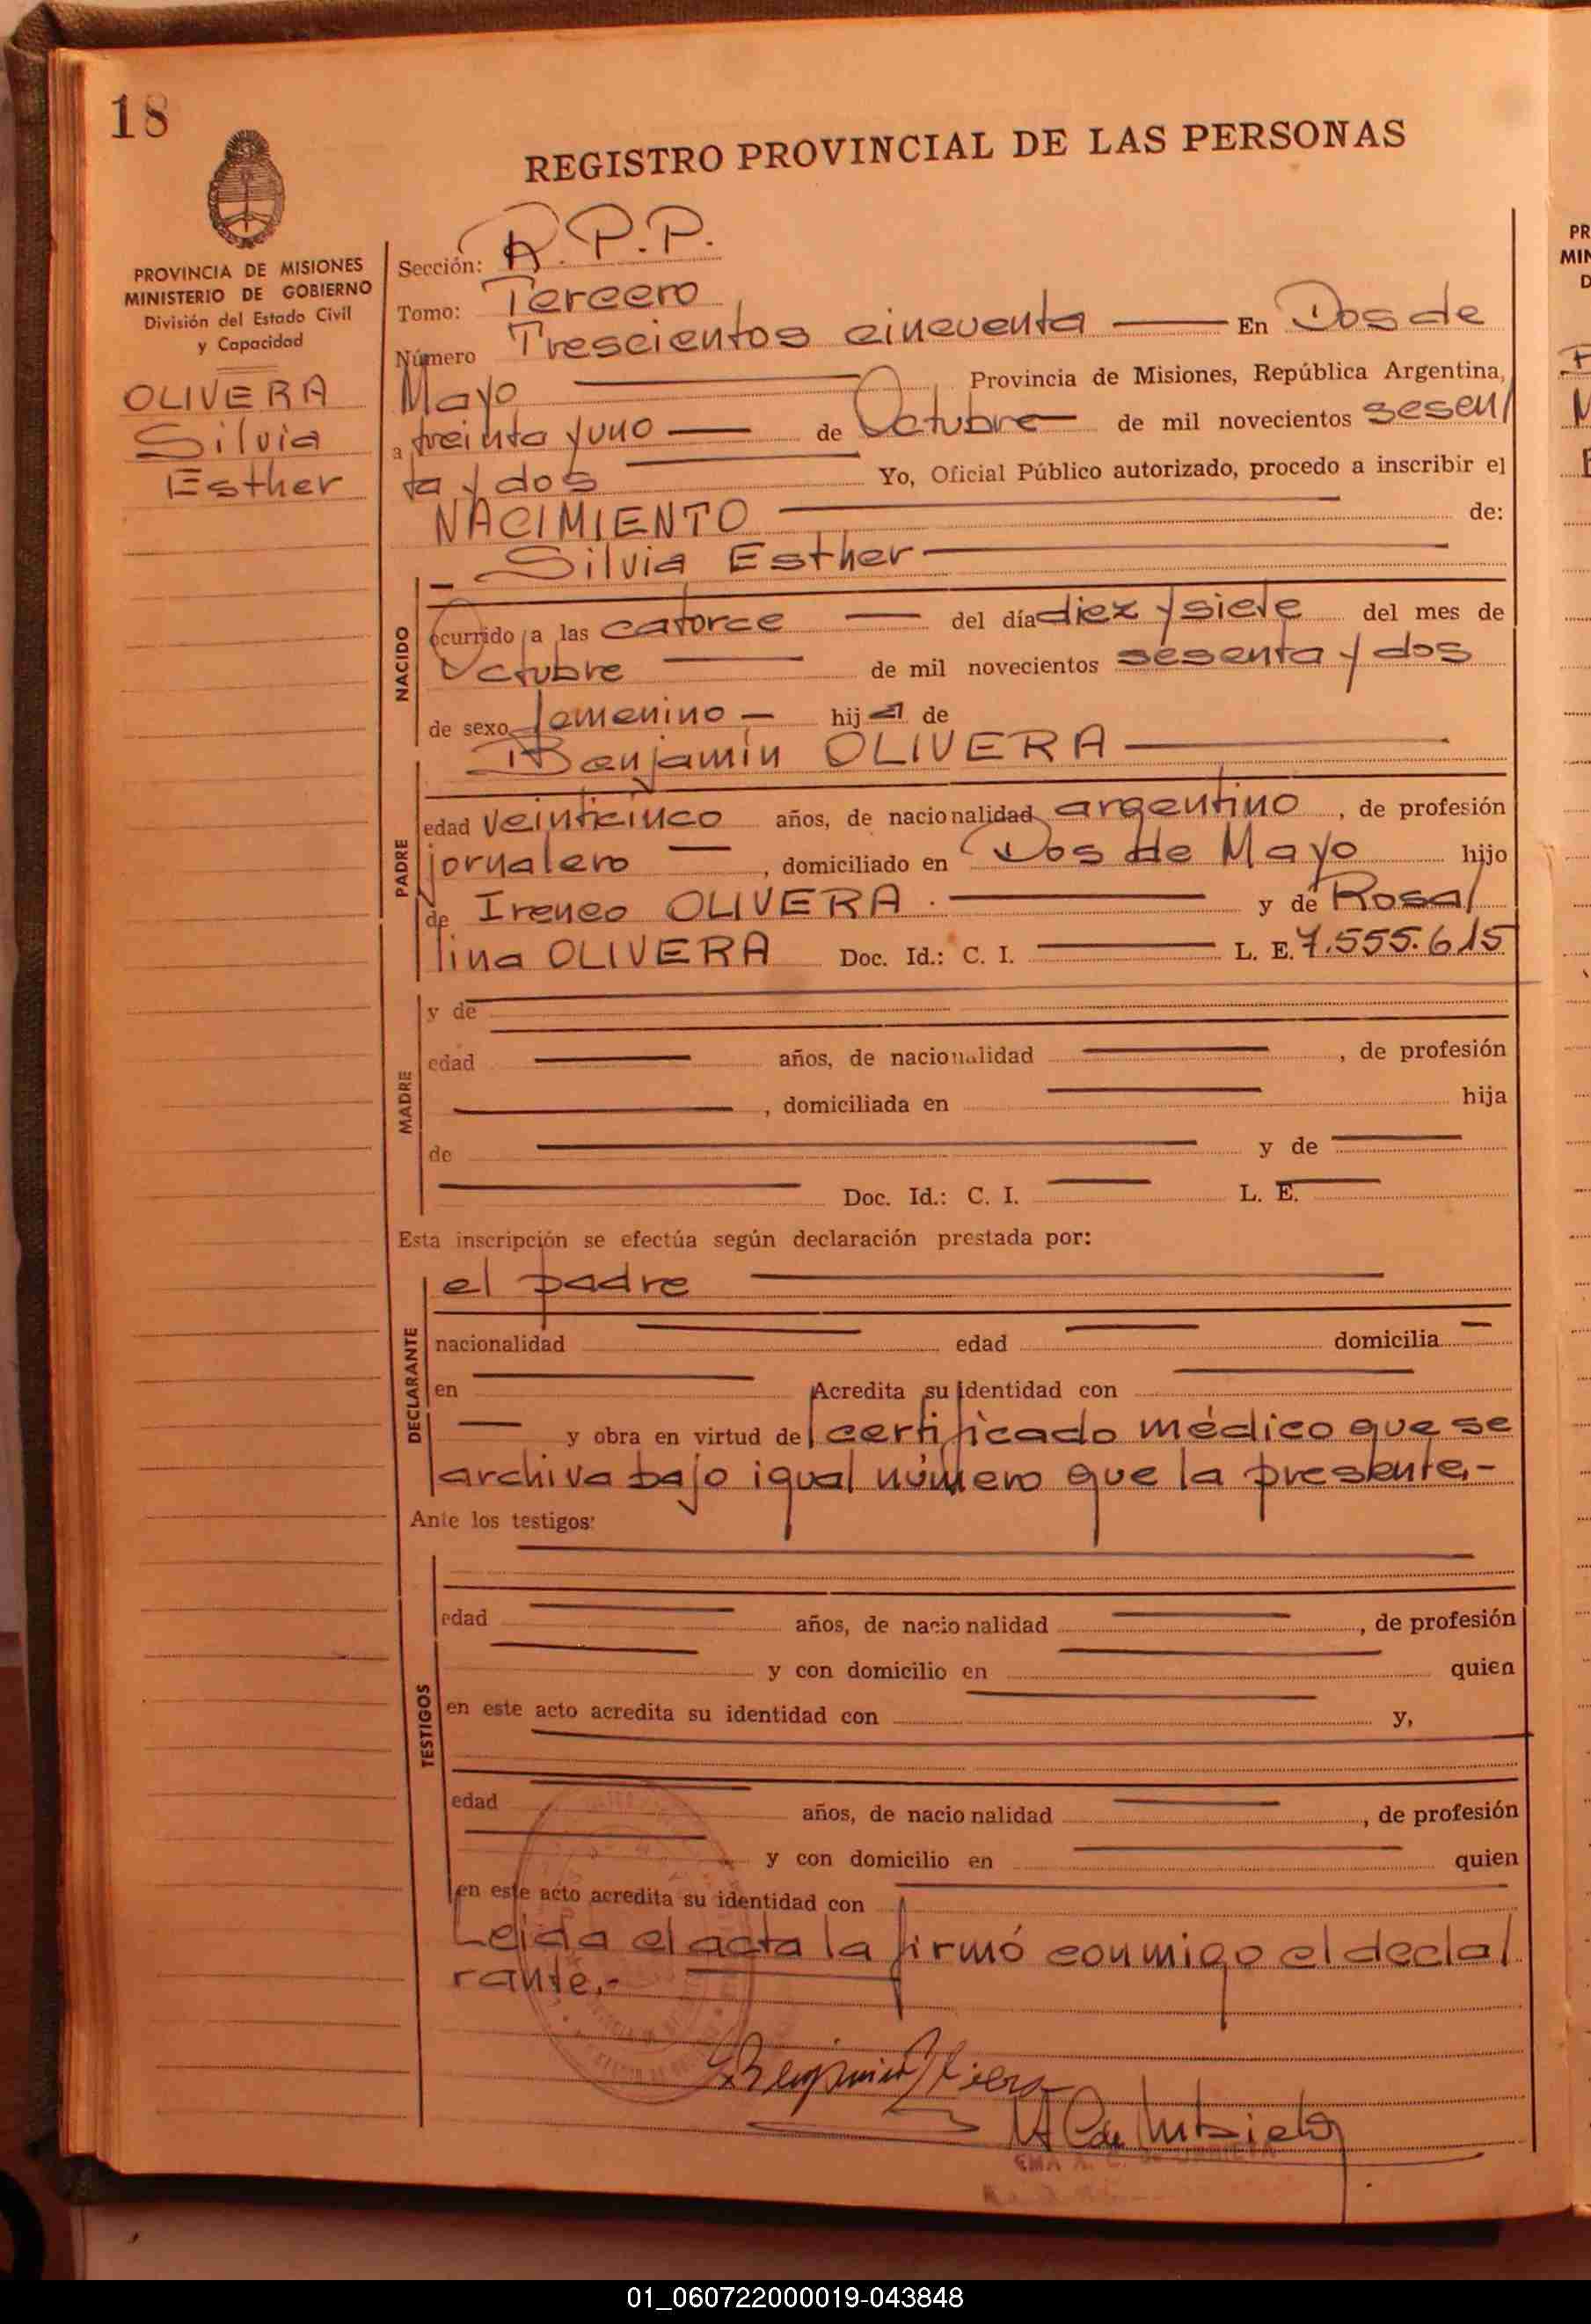 18
REGISTRO PROVINCIAL DE LAS PERSONAS
PROVINCIA DE MISIONES
MINISTERIO DE GOBIERNO
División del Estado Civil
y Capacidad
OLIVERA
Silvia
Esther
Sección: R.P.P.
Tomo: Tercero
Número Trescientos cincuenta En Dos de
Mayo Provincia de Misiones, República Argentina,
a treinta y uno de Octubre de mil novecientos sesen/
ta y dos Yo, Oficial Público autorizado, procedo a inscribir el
NACIMIENTO de:
Silvia Esther
NACIDO
ocurrido a las catorce del día diez y siete del mes de
Octubre de mil novecientos sesenta y dos
de sexo femenino hija de
Benjamín OLIVERA
PADRE
edad veinticinco años, de nacionalidad argentino, de profesión
jornalero, domiciliado en Dos de Mayo hijo
de Ireneo OLIVERA y de Rosa/
lina OLIVERA Doc. Id.: C. I. L. E. 7.555.615
MADRE
y de
edad años, de nacionalidad , de profesión
, domiciliada en hija
de y de
Doc. Id.: C. I. L. E.
Esta inscripción se efectúa según declaración prestada por:
DECLARANTE
el padre
nacionalidad edad domicilia
en Acredita su identidad con
y obra en virtud de certificado médico que se
archiva bajo igual número que la presente.-
Ante los testigos:
TESTIGOS
edad años, de nacionalidad , de profesión
y con domicilio en quien
en este acto acredita su identidad con y,
edad años, de nacionalidad , de profesión
y con domicilio en quien
en este acto acredita su identidad con
Leida el acta la firmó conmigo el decla/
rante.-
PR
MIN
D
01_060722000019-043848